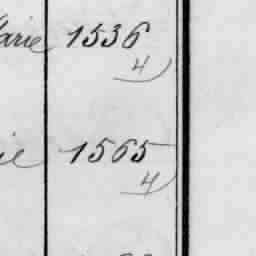 arie 1536
4)
ie 1565
4)